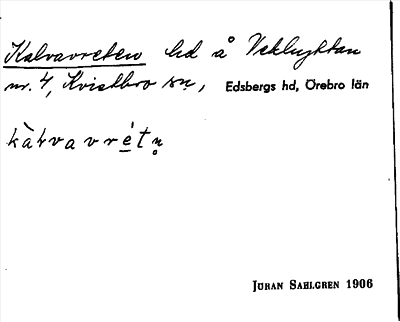 Kalvavreten hd å Veklyktan
nr. 4, Kvistbro sn, Edsbergs hd, Örebro län
kàɫvavré̲tn̥
JÖRAN SAHLGREN 1906